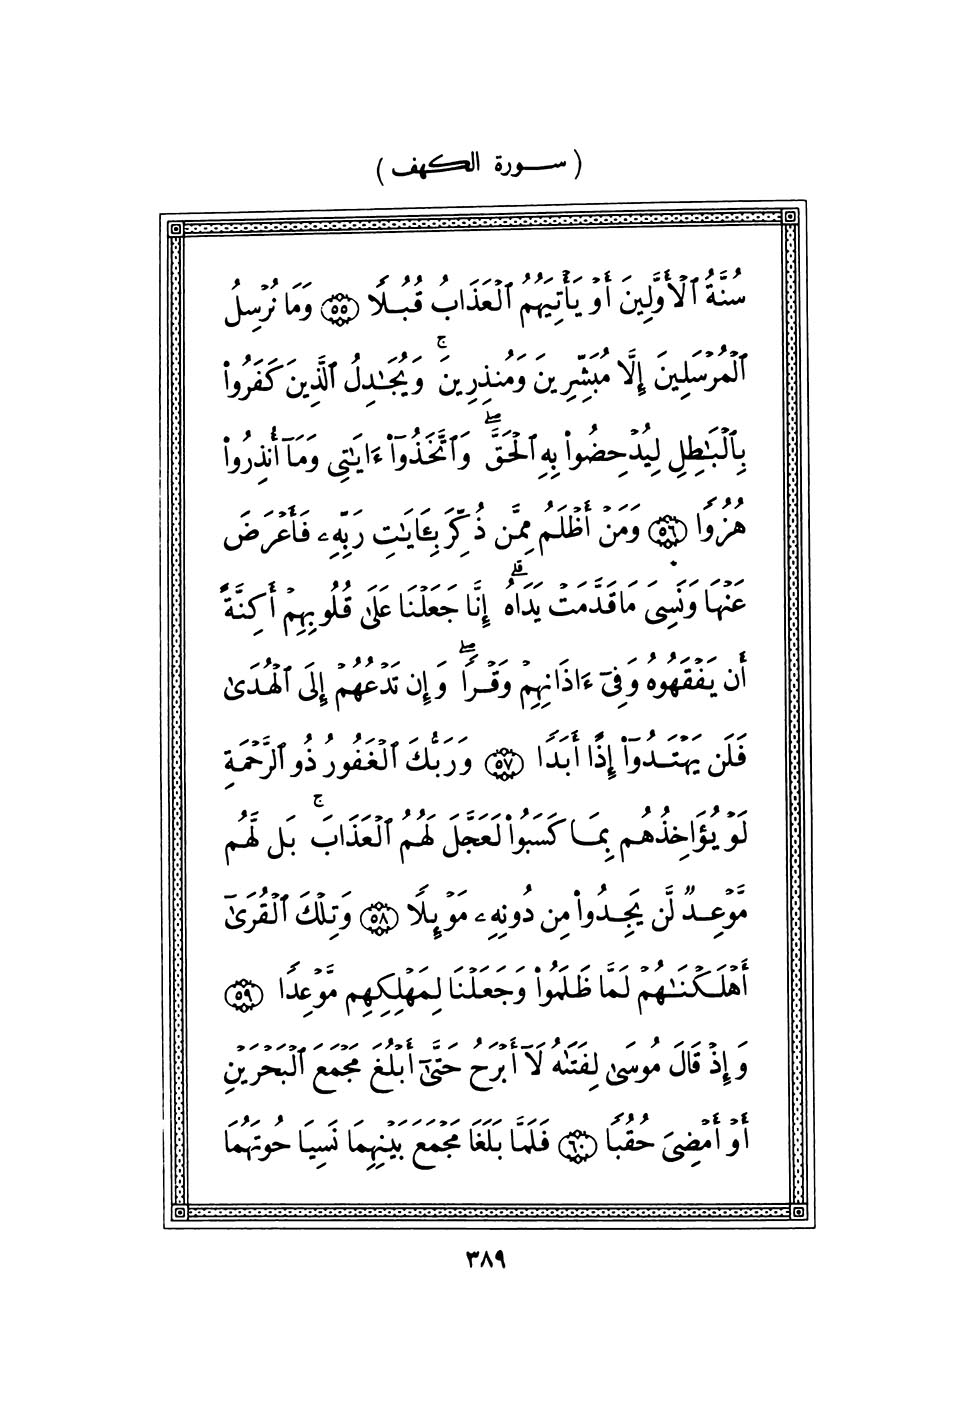 ( سورة الكهف )
سُنَّةُ ٱلْأَوَّلِينَ أَوْ يَأْتِيَهُمُ ٱلْعَذَابُ قُبُلًا ۝٥٥ وَمَا نُرْسِلُ
ٱلْمُرْسَلِينَ إِلَّا مُبَشِّرِينَ وَمُنذِرِينَ ۚ وَيُجَٰدِلُ ٱلَّذِينَ كَفَرُوا۟
بِٱلْبَٰطِلِ لِيُدْحِضُوا۟ بِهِ ٱلْحَقَّ ۖ وَٱتَّخَذُوٓا۟ ءَايَٰتِى وَمَآ أُنذِرُوا۟
هُزُوًا ۝٥٦ وَمَنْ أَظْلَمُ مِمَّن ذُكِّرَ بِـَٔايَٰتِ رَبِّهِۦ فَأَعْرَضَ
عَنْهَا وَنَسِىَ مَا قَدَّمَتْ يَدَاهُ ۚ إِنَّا جَعَلْنَا عَلَىٰ قُلُوبِهِمْ أَكِنَّةً
أَن يَفْقَهُوهُ وَفِىٓ ءَاذَانِهِمْ وَقْرًا ۖ وَإِن تَدْعُهُمْ إِلَى ٱلْهُدَىٰ
فَلَن يَهْتَدُوٓا۟ إِذًا أَبَدًا ۝٥٧ وَرَبُّكَ ٱلْغَفُورُ ذُو ٱلرَّحْمَةِ
لَوْ يُؤَاخِذُهُم بِمَا كَسَبُوا۟ لَعَجَّلَ لَهُمُ ٱلْعَذَابَ ۚ بَل لَّهُم
مَّوْعِدٌ لَّن يَجِدُوا۟ مِن دُونِهِۦ مَوْئِلًا ۝٥٨ وَتِلْكَ ٱلْقُرَىٰٓ
أَهْلَكْنَٰهُمْ لَمَّا ظَلَمُوا۟ وَجَعَلْنَا لِمَهْلِكِهِم مَّوْعِدًا ۝٥٩
وَإِذْ قَالَ مُوسَىٰ لِفَتَىٰهُ لَآ أَبْرَحُ حَتَّىٰٓ أَبْلُغَ مَجْمَعَ ٱلْبَحْرَيْنِ
أَوْ أَمْضِىَ حُقُبًا ۝٦٠ فَلَمَّا بَلَغَا مَجْمَعَ بَيْنِهِمَا نَسِيَا حُوتَهُمَا
٣٨٩